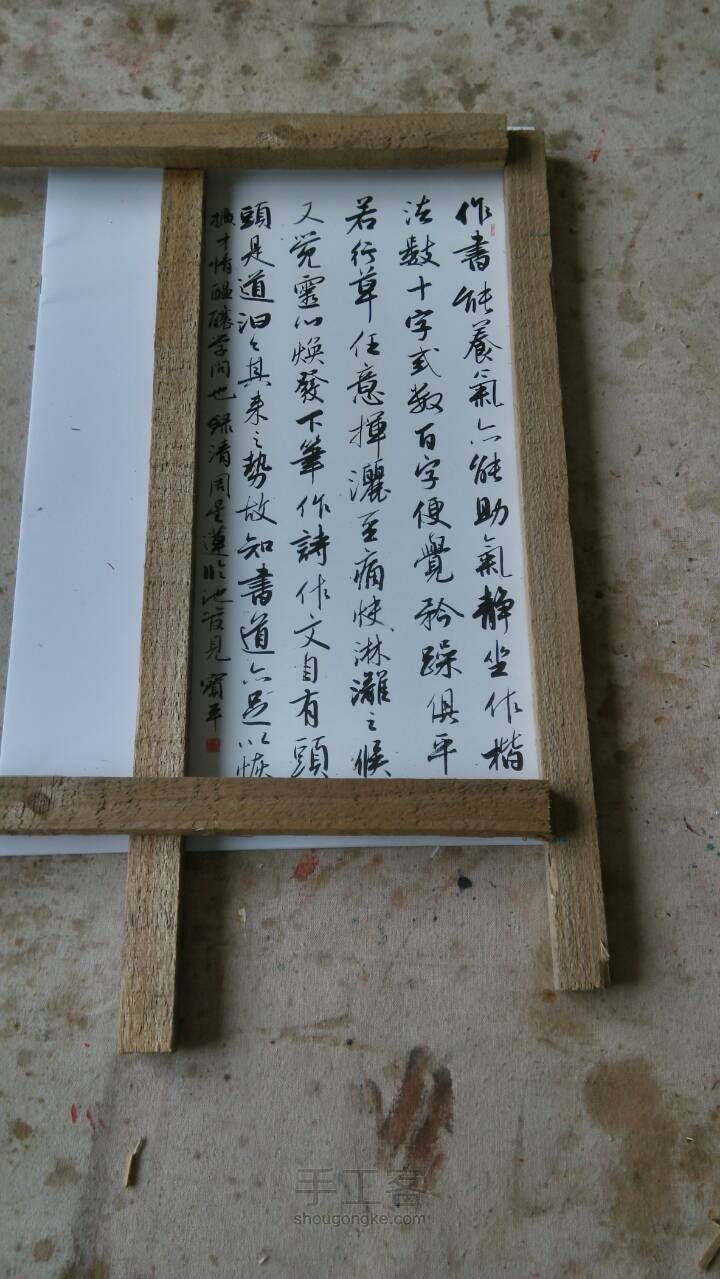 作書能養氣亦能助氣静坐作楷
法數十字或数百字便覺矜躁俱平
若行草任意揮灑至痛快淋灕之候
又覚靈心焕發下筆作詩作文自有頭
頭是道汩々其来之勢故知書道亦足以恢
擴才情醖釀学问也 録清周星蓮临池管見 寳平
手工客
shougongke.com